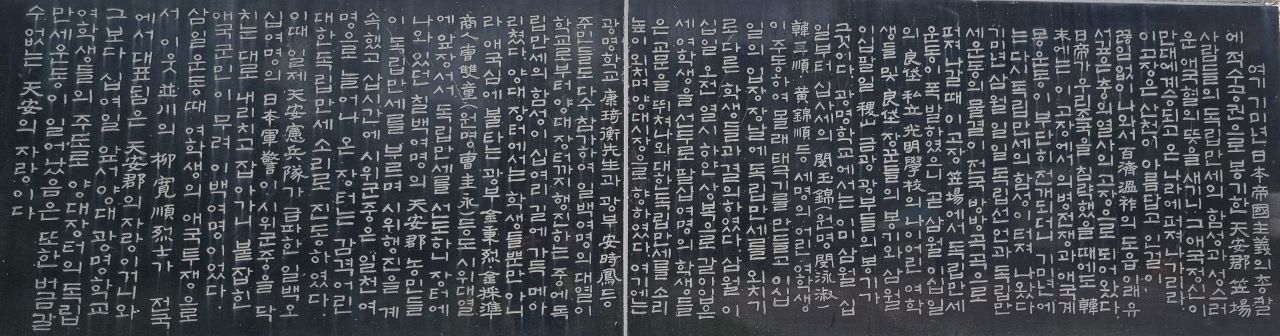 여기 기미년 日本帝國主義의 총칼
에 적수공권으로 봉기한 天安郡 笠場
사람들의 독립만세의 함성과 성스러
운 애국혈의 뜻을 새기니 그 애국정신이
만대에 계승되고 온 나라에 퍼져나가리라.
이 고장은 산천이 아름답고 인걸이
끊임없이 나와서 百濟溫祚의 도읍 유
서깊은 충의열사의 고장으로 되어왔다.
日帝가 우리조국을 침략했을때에도 韓
末에는 이 고장에서 의병전쟁과 애국계
몽운동이 부단히 전개되더니 기미년에
는 다시 독립만세의 함성이 터져 나왔다
기미년 삼월일일의 독립선언과 독립만
세운동의 물결이 전국 방방곡곡으로
퍼져나갈때 이 고장 笠場에서 독립만세
운동이 폭발하였으니 곧 삼월 이십일
의 良垈 私立 光明學校의 나이어린 여학
생들 및 良垈 장꾼들의 봉기와 삼월
이십팔일 稷山 금광광부들의 봉기가
그것이다 광명학교에서는 이미 삼월 십
일부터 십사세의 閔玉錦(원명 閔泳淑)
韓二順·黃錦順등 세명의 어린 여학생
이 주동하여 몰래 태극기를 만들고 이십
일의 입장장날에 독립만세를 외치기
로 다른 학생들과 결의하였다. 삼월 이
십일 오전 열시 하얀 상복으로 갈아입은
세 여학생을 선두로 팔십여명의 학생들
은 교문을 뛰쳐나와 대한독립만세를 소리
높이 외치며 양대시장으로 향하였다. 여기에는
광명학교 康琦衡先生과 광부 安時鳳등
주민들도 다수 참가하여 일백여명의 대열이
학교로부터 양대장터까지 행진하는 중에 독
립만세의 함성이 십여리길에 가득 메아
리쳤다. 양대장터에서는 학생들뿐만 아니
라 애국심에 불타는 광부 金東烈·金採準
商人 曺雙童(원명 曺圭永)등도 시위대열
에 앞장서서 독립만세를 선도하니 장터에
나와있던 칠백여명의 天安郡 농민들
이 독립만세를 부르며 시위행진에 계
속했고 삽시간에 시위군중은 일천여
명으로 늘어나 온 장터는 감격어린
대한독립만세 소리로 진동하였다.
이때 일제 天安憲兵隊가 급파한 일백오
십여명의 日本軍警이 시위군중을 닥
치는대로 내리치고 잡아가니 붙잡힌
애국군민이 무려 이백여명이었다.
삼일운동때 여학생의 애국투쟁으로
서 이웃 並川의 柳寬順烈士가 전국
에서 대표됨은 天安郡의 자랑이거니와
그보다 십여일 앞서 양대 광명학교
여학생들의 주도로 양대장터의 독립
만세운동이 일어났음은 또한 변갈
수없는 天安의 자랑이다